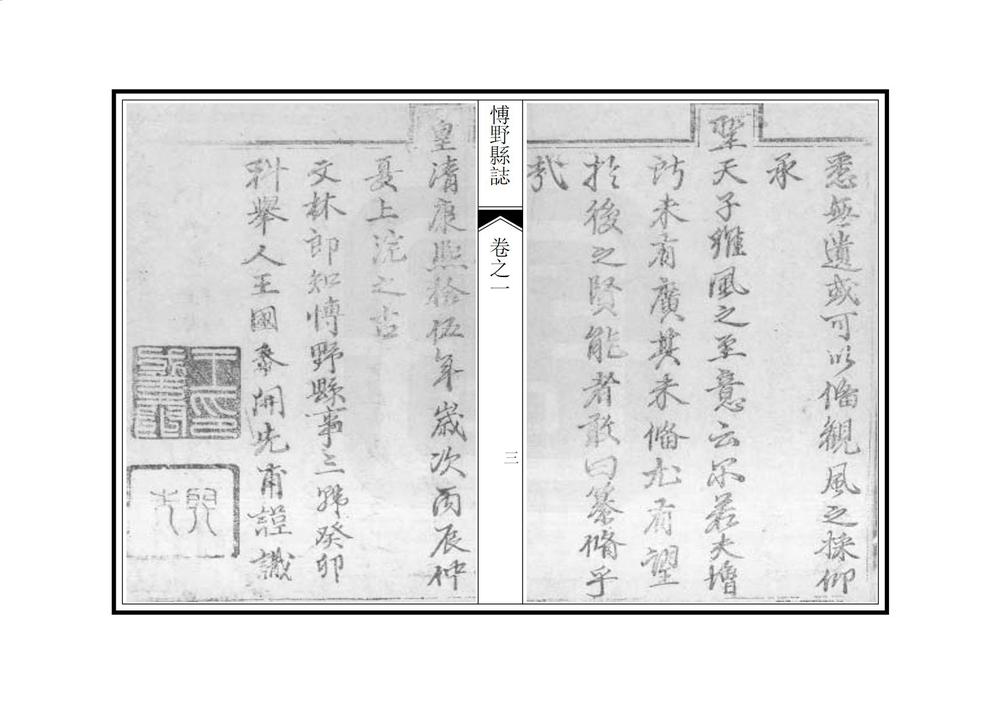 悉無遺或可以備觀風之採仰
承
聖天子雅風之至意云尔若夫增
所未有廣其未備尤有望
於後之賢能者敢曰纂脩乎
㢤
博野縣誌
卷之一
三
皇清康熙拾伍年歲次丙辰仲
夏上浣之吉
文林郎知博野縣事三韓癸卯
科舉人王國泰開先甫謹識
開先